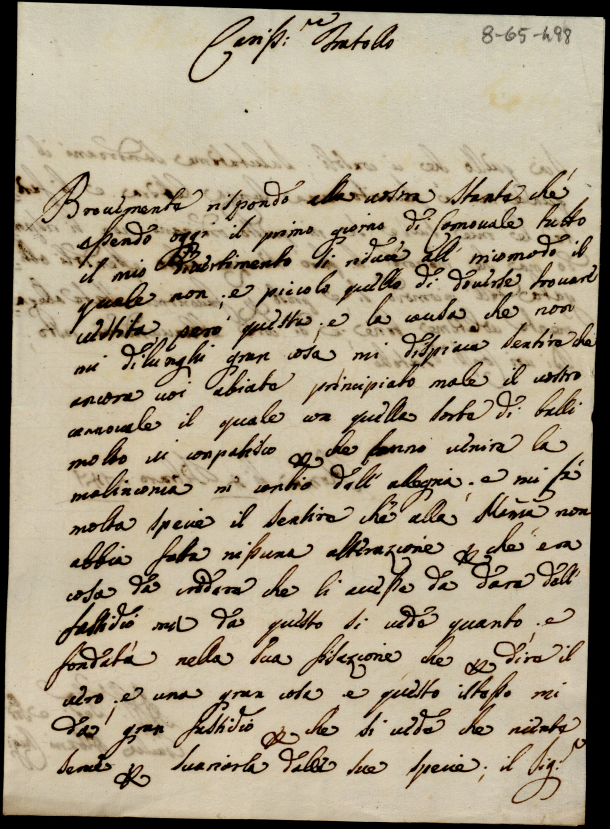 8-65-498
Cariss:mo Fratello
Brevemente rispondo alla vostra stante che
essendo oggi il primo giorno di Carnovale tutto
il mio divertimento si riduce all incomodo il
quale non, e piccolo quello di doverse trovare
vestita pero questa, e la causa che non
mi dilunghi gran cosa mi dispiace sentire che
ancora voi abiate principiato male il vostro
carnovale il quale con quella sorte di balli
molto vi compatisco che fanno venire la
malinconia in cambio dell' alegria. e mi fà
molta specie il sentire che alla Mamà non
abbia fatta nissuna alterazione che era
cosa da credere che li avesse da dare dell'
fastidio ma da questo si vede quanto, e
fondata nella sua fissazione che dire il
vero, e una gran cosa e questo istesso mi
da gran fastidio che si vede che niente
serve suariarla dalle sue specie, il Sig:re